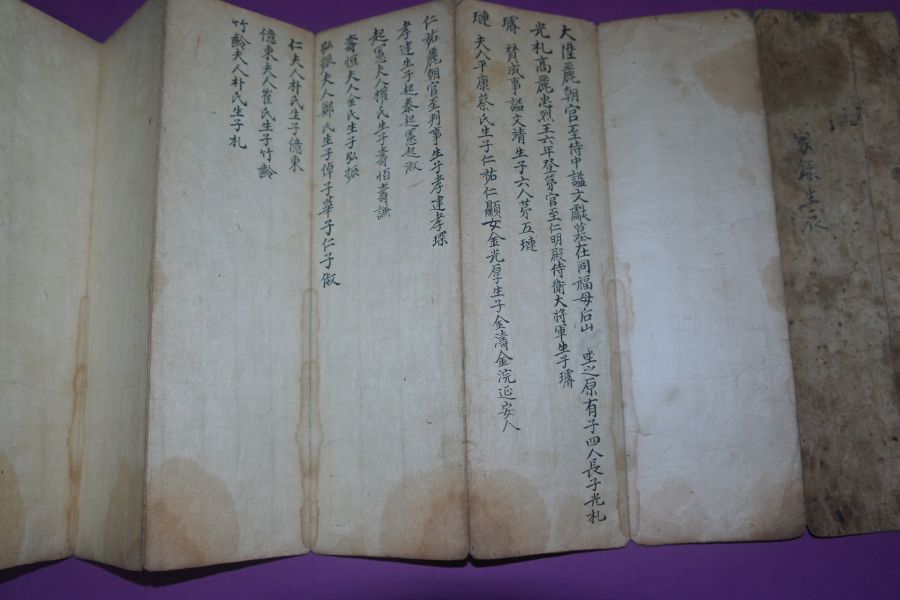 家錄生辰
大陞麗朝官至侍中諡文獻墓在同福母后山 坐之原有子四人長子光札
光札高麗忠烈王六年登第官至仁明殿侍衛大將軍生子璿
璿 贊成事諡文靖生子六人第五璉
璉 夫人平康蔡氏生子仁祐仁顯女金光厚生子金濤金浣延安人
仁祐麗朝官至判事生子孝建孝琛
孝建生子起泰起寬起淑
起寬夫人權氏生子壽恒壽謙
壽恒夫人金氏生子弘振
弘振夫人鄭氏生子倬子華子仁子俶
仁夫人朴氏生子億東
億東夫人崔氏生子竹齡
竹齡夫人朴氏生子札